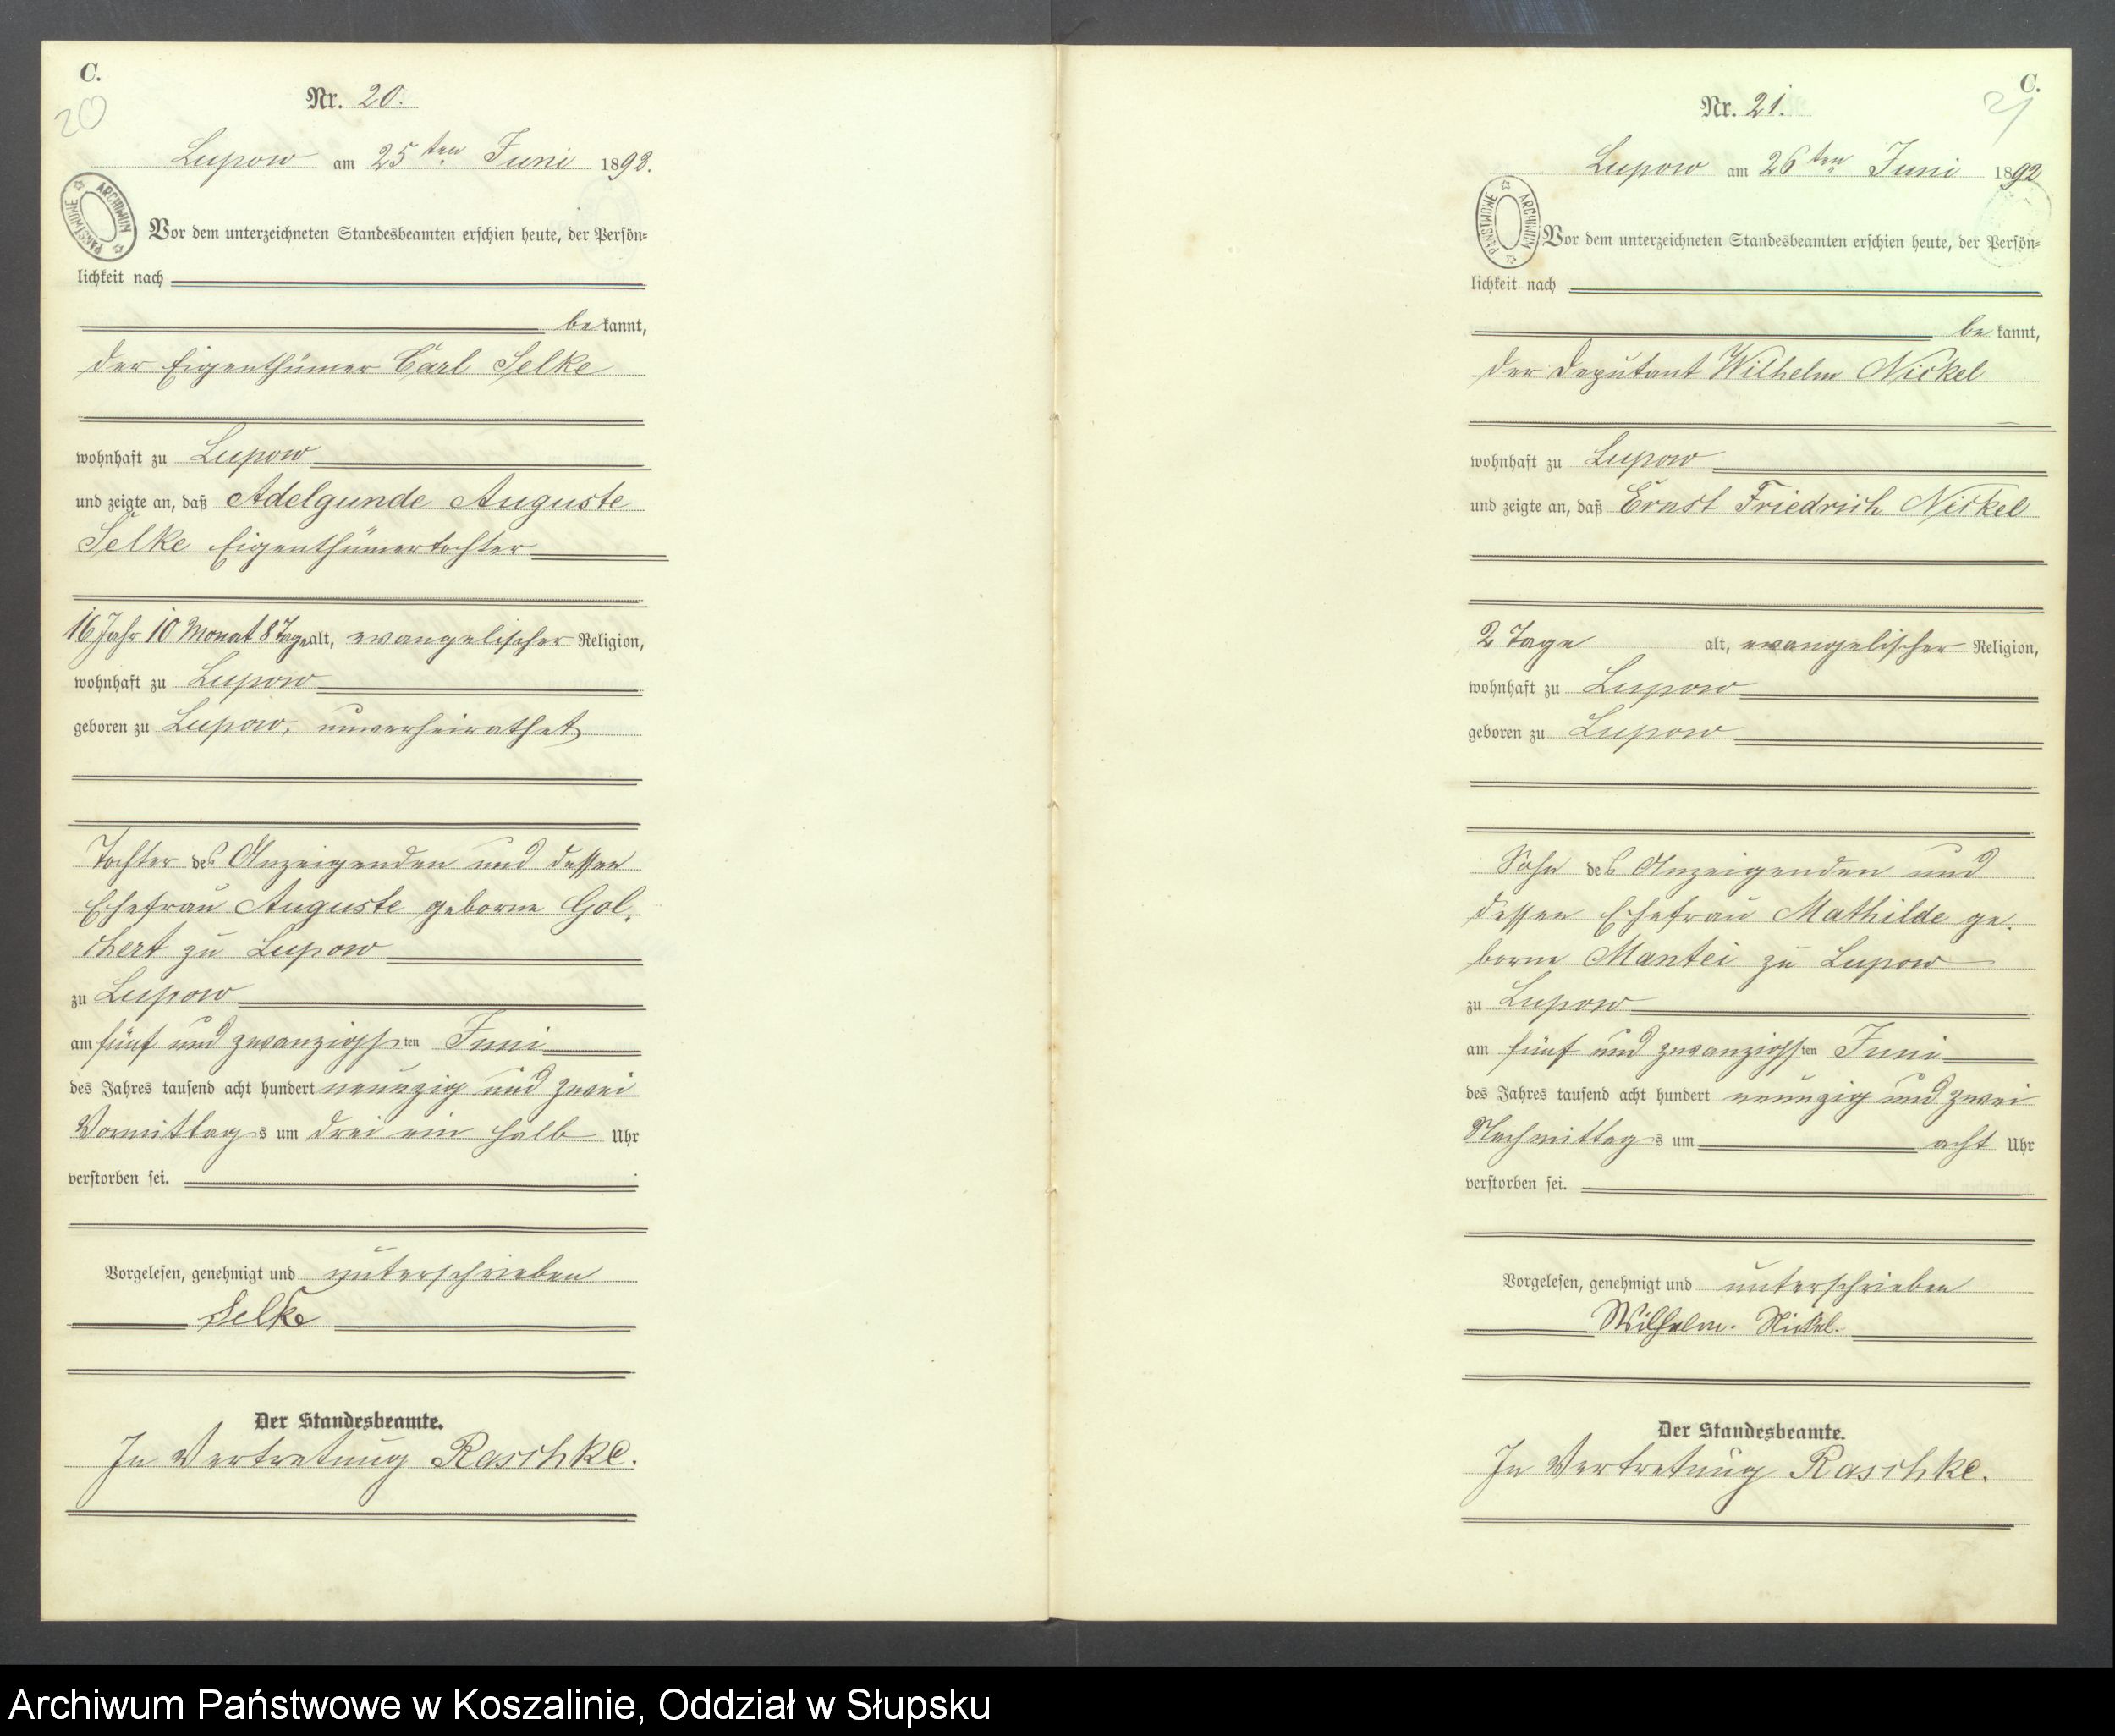 C.
20
Nr. 20.
Lupow am 25ten Juni 1892.
ARCHIWUM PAŃSTWOWE
Vor dem unterzeichneten Standesbeamten erschien heute, der Persön=
lichkeit nach
be kannt,
der Eigenthümer Carl Selke
wohnhaft zu Lupow
und zeigte an, daß Adelgunde Auguste
Selke Eigenthümertochter
16 Jahr 10 Monat 8 Tage alt, evangelischer Religion,
wohnhaft zu Lupow
geboren zu Lupow, unverheirathet
Tochter des Anzeigenden und dessen
Ehefrau Auguste geborne Gol,
chert zu Lupow
zu Lupow
am fünf und zwanzigsten Juni
des Jahres tausend acht hundert neunzig und zwei
Vormittags um drei ein halb Uhr
verstorben sei.
Vorgelesen, genehmigt und unterschrieben
Selke
Der Standesbeamte.
In Vertretung Raschke.
C.
21
Nr. 21.
Lupow am 26ten Juni 1892
ARCHIWUM PAŃSTWOWE
Vor dem unterzeichneten Standesbeamten erschien heute, der Persön=
lichkeit nach
be kannt,
der Deputant Wilhelm Nickel
wohnhaft zu Lupow
und zeigte an, daß Ernst Friedrich Nickel
2 Tage alt, evangelischer Religion,
wohnhaft zu Lupow
geboren zu Lupow
Sohn des Anzeigenden und
dessen Ehefrau Mathilde ge.
borne Mantei zu Lupow
zu Lupow
am fünf und zwanzigsten Juni
des Jahres tausend acht hundert neunzig und zwei
Nachmittags um acht Uhr
verstorben sei.
Vorgelesen, genehmigt und unterschrieben
Wilhelm. Nickel.
Der Standesbeamte.
In Vertretung Raschke.
Archiwum Państwowe w Koszalinie, Oddział w Słupsku